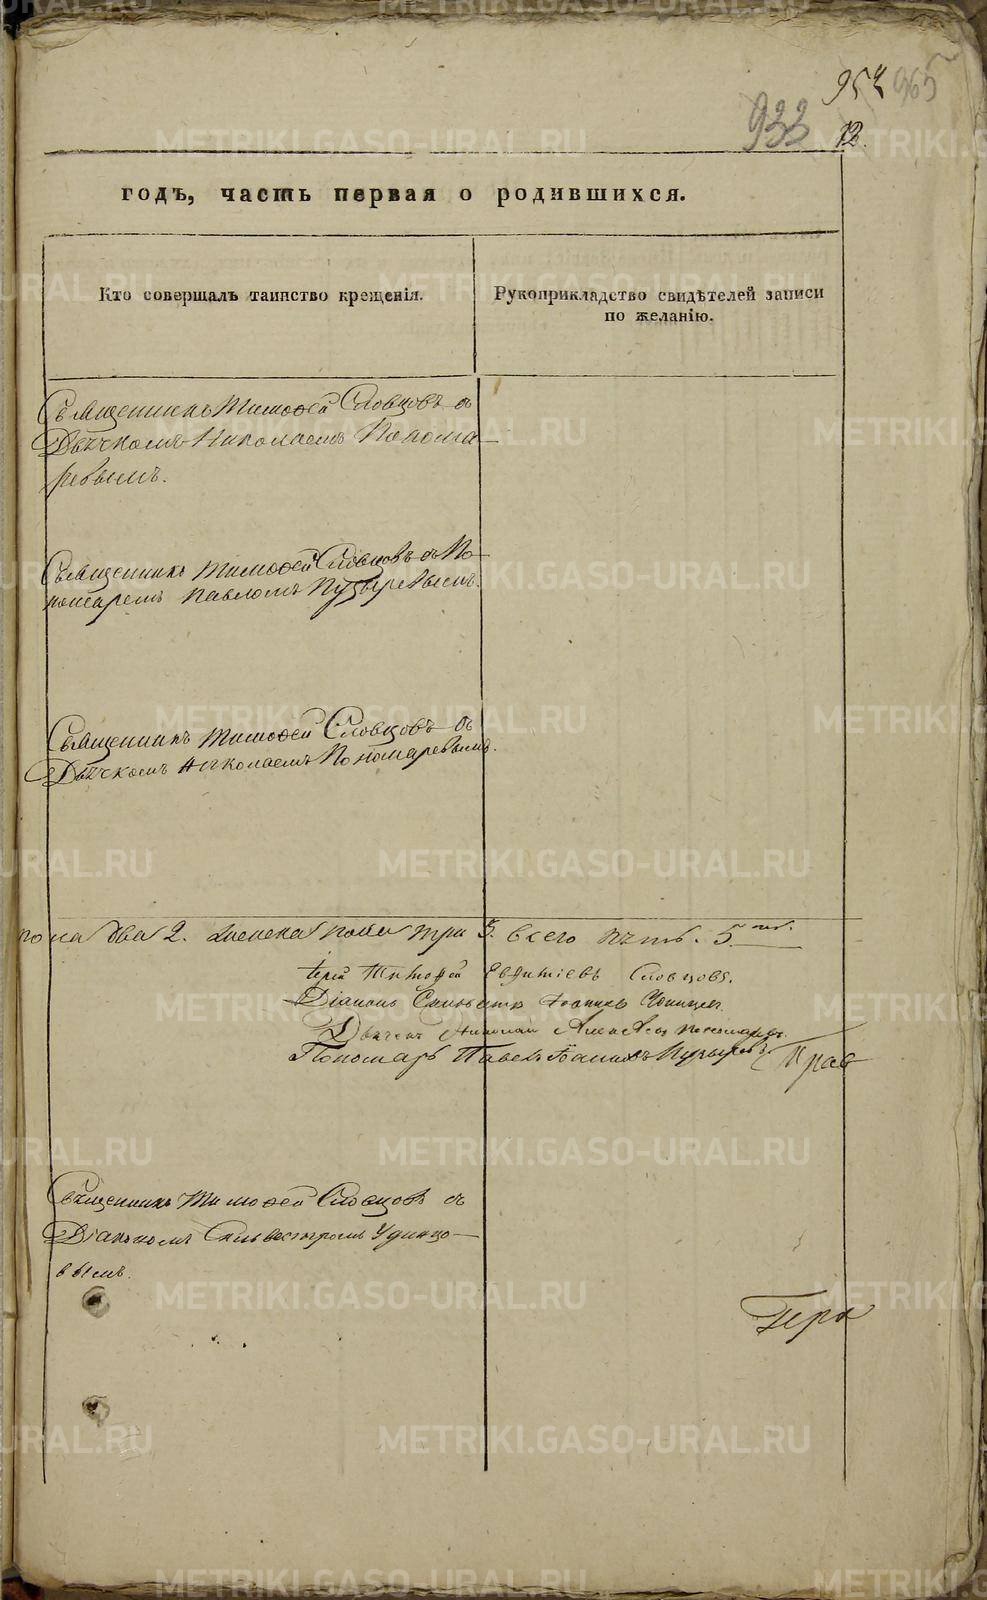 952 965
933 12.
годъ, часть первая о родившихся.
Кто совершалъ таинство крещенія.
Рукоприкладство свидѣтелей записи
по желанію.
Священникъ Тимофей Словцовъ съ
Дьячкомъ Николаемъ Понома
ревымъ.
Священникъ Тимофей Словцовъ съ По
номаремъ Павломъ Пузыревымъ.
Священникъ Тимофей Словцовъ съ
Дьячкомъ Николаемъ Пономаревымъ.
пола два 2. женска пола три 3. всего пять. 5.
Іерей Тимофей Словцовъ.
Діаконъ
Дьячекъ Николай Алексѣевъ Пономаревъ.
Пономарь Павелъ Пузыревъ
Священникъ Тимофей Словцовъ съ
Діакономъ Сильвестромъ Удинцо
вымъ.
METRIKI.GASO-URAL.RU